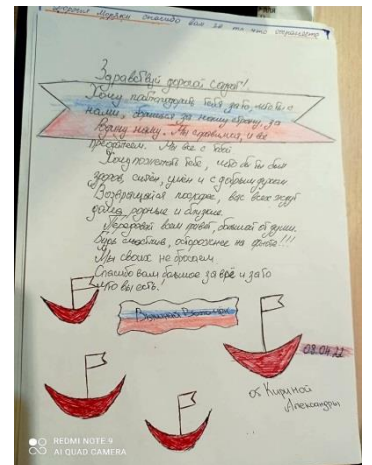 дорогие мужики спасибо вам за то что охраняете
Здравствуй дорогой солдат!
Хочу поблагодарить тебя за то, что ты с
нами, борешься за нашу страну, за
Мы справимся, и всё
преодолеем. Мы все с тобой
Хочу пожелать тебе, чтоб бы ты был
здоров, силён, умён и с добрым духом
Возвращайся поскорее, вас всех ждут
дома, родные и близкие.
всем привет, большой от души.
Будь счастлив, осторожнее на фронте!!!
Мы своих не бросаем.
Спасибо вам большое за всё и за то
что вы есть!
Вышний Волочек
08.04.22
от Кириной
Александры
REDMI NOTE 9
AI QUAD CAMERA